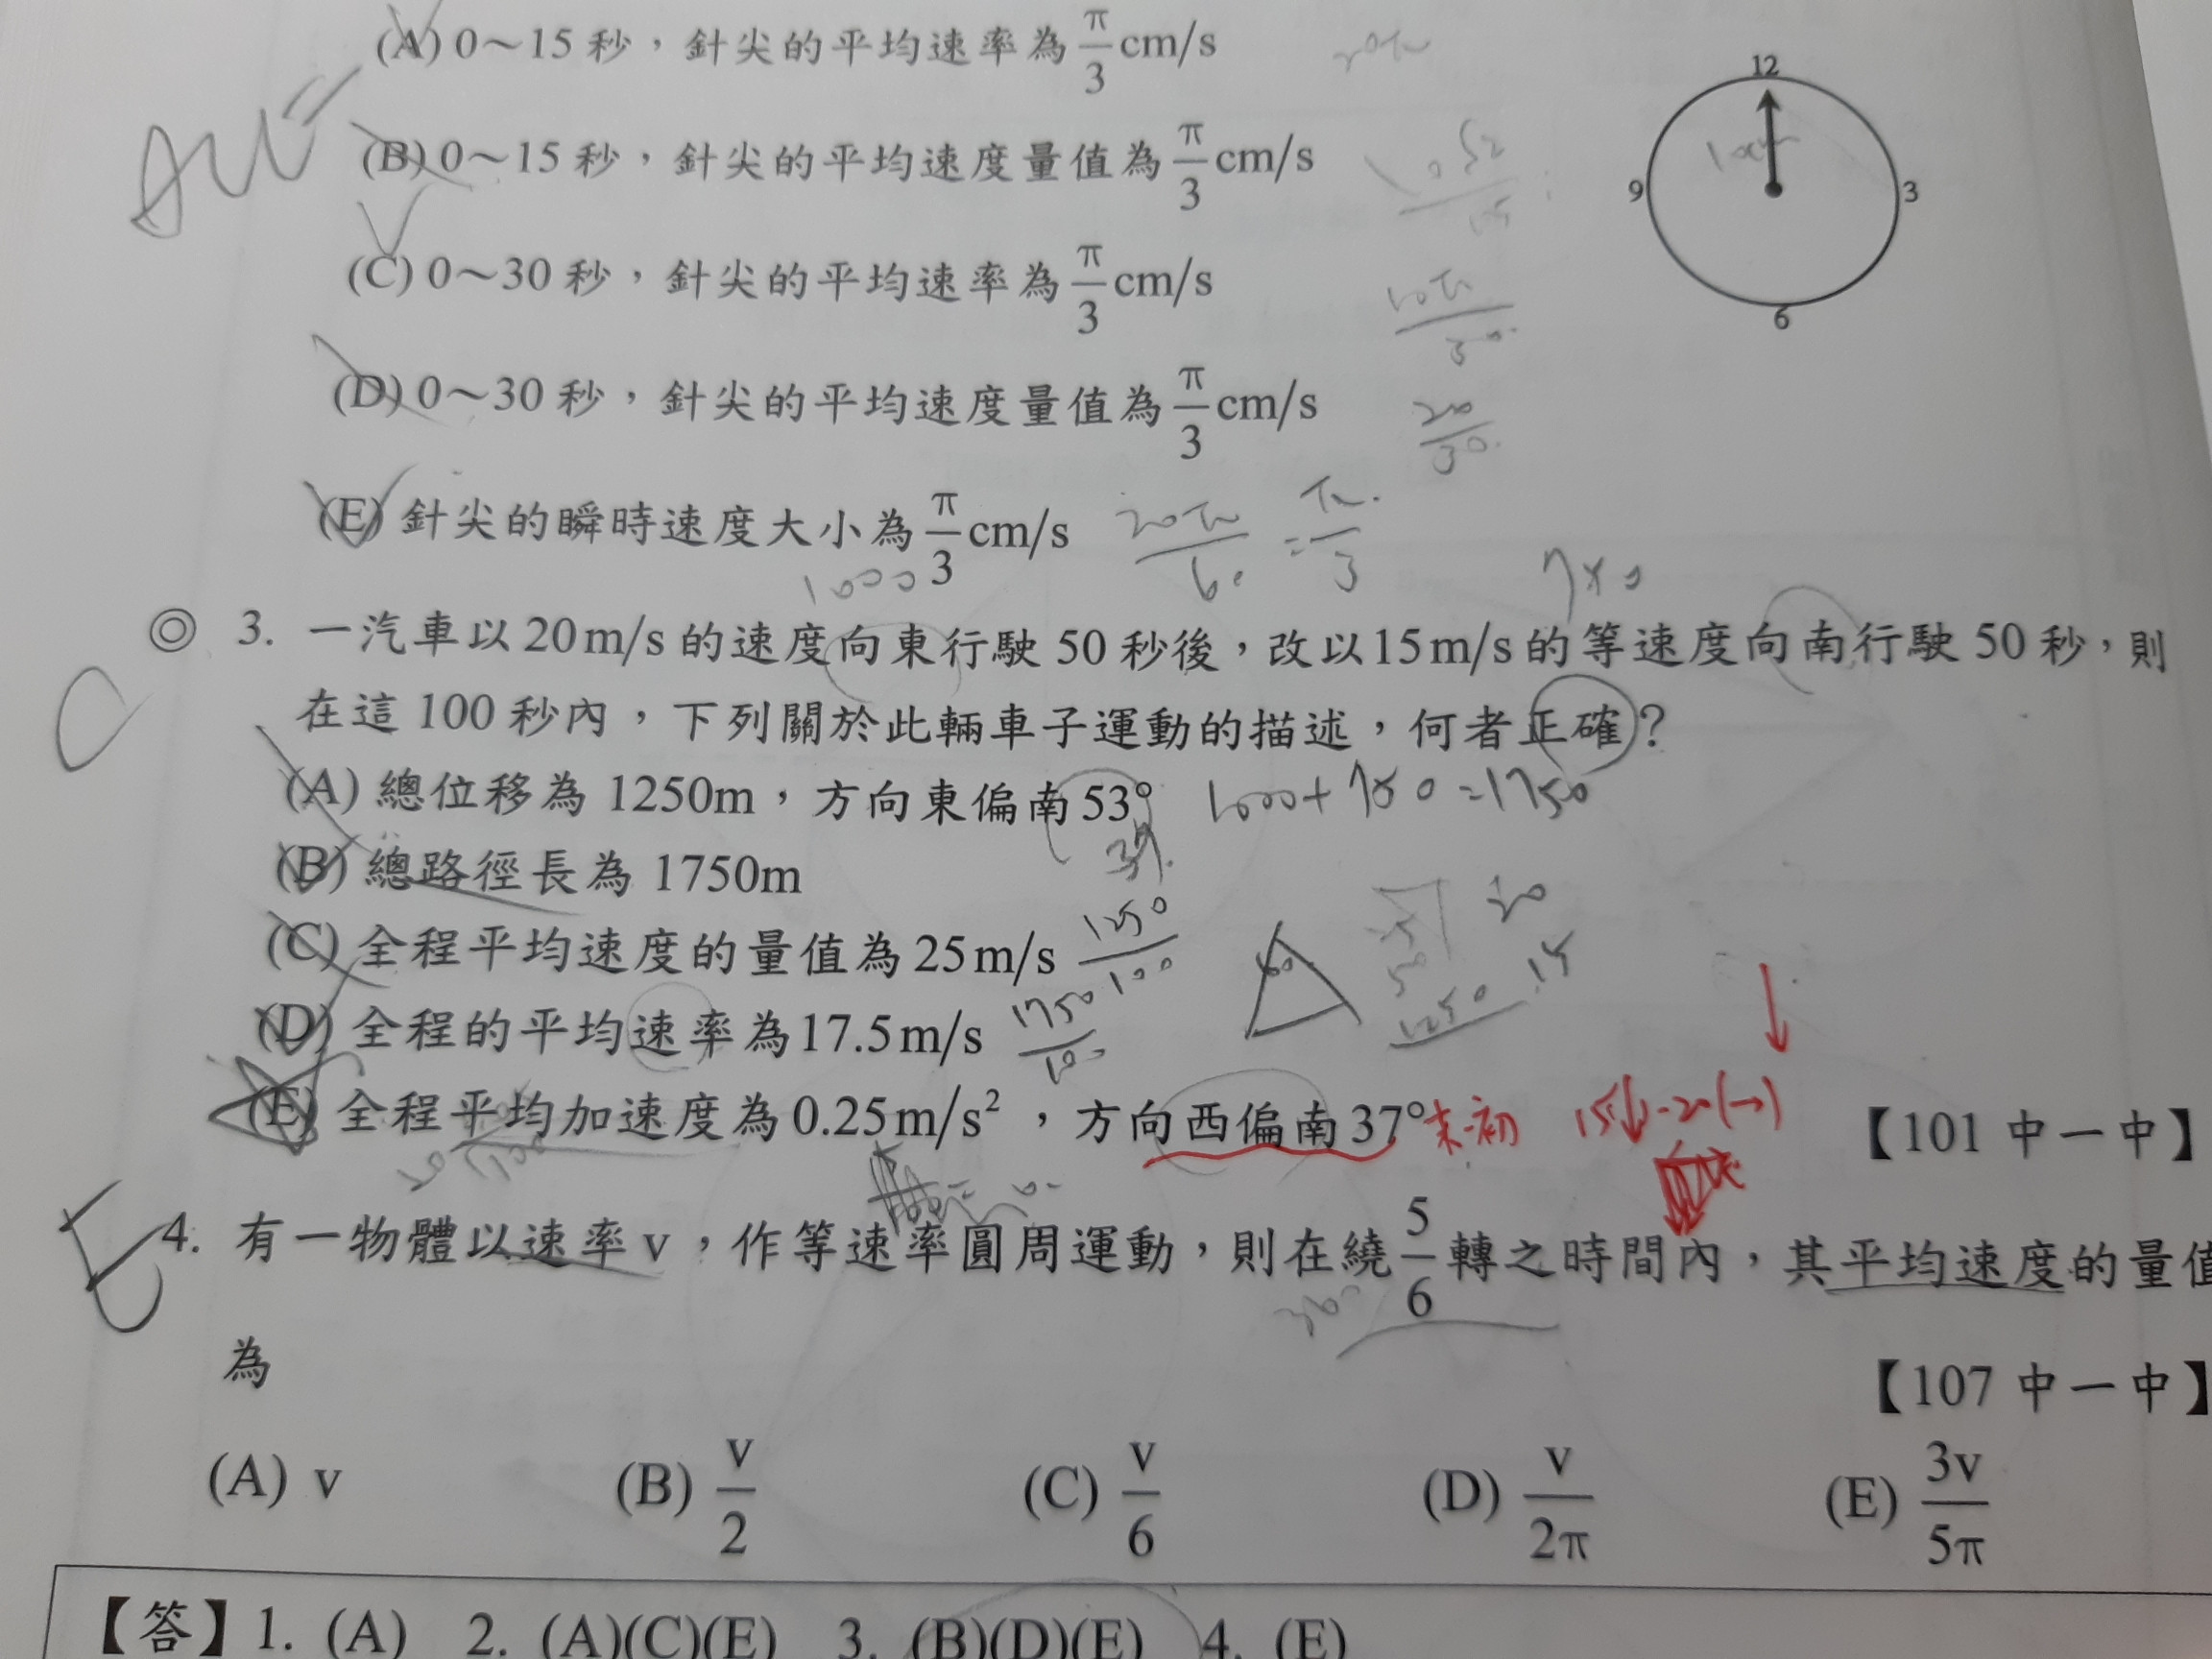 (A) 0～15 秒，針尖的平均速率為 π/3 cm/s
12
(B) 0～15 秒，針尖的平均速度量值為 π/3 cm/s
9
3
(C) 0～30 秒，針尖的平均速率為 π/3 cm/s
6
(D) 0～30 秒，針尖的平均速度量值為 π/3 cm/s
(E) 針尖的瞬時速度大小為 π/3 cm/s
20π/60 = π/3
1000
◎ 3. 一汽車以 20 m/s 的速度向東行駛 50 秒後，改以 15 m/s 的等速度向南行駛 50 秒，則
在這 100 秒內，下列關於此輛車子運動的描述，何者正確？
(A) 總位移為 1250m，方向東偏南 53° 1000+750=1750
37
(B) 總路徑長為 1750m
(C) 全程平均速度的量值為 25 m/s 1250/100
(D) 全程的平均速率為 17.5 m/s 1750/100
(E) 全程平均加速度為 0.25 m/s²，方向西偏南 37° 末-初 15↓-20(→)
【101 中一中】
4. 有一物體以速率 v，作等速率圓周運動，則在繞 5/6 轉之時間內，其平均速度的量值
為
【107 中一中】
(A) v (B) v/2 (C) v/6 (D) v/2π (E) 3v/5π
【答】1. (A) 2. (A)(C)(E) 3. (B)(D)(E) 4. (E)